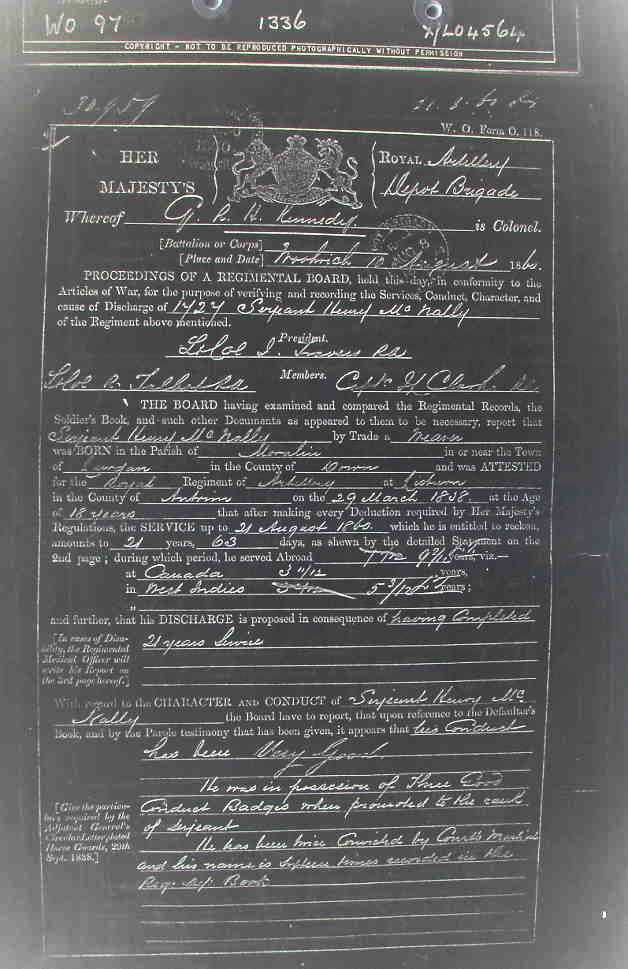 WO 97 1336 X/L04564
COPYRIGHT - NOT TO BE REPRODUCED PHOTOGRAPHICALLY WITHOUT PERMISSION
W. O. Form O. 118.
HER MAJESTY'S
ROYAL Artillery
Depot Brigade
Whereof is Colonel.
[Battalion or Corps]
[Place and Date] Woolwich August 1860.
PROCEEDINGS OF A REGIMENTAL BOARD, held this day, in conformity to the
Articles of War, for the purpose of verifying and recording the Services, Conduct, Character, and
cause of Discharge of 1427 Serjeant Henry McNally
of the Regiment above mentioned.
President.
Members.
THE BOARD having examined and compared the Regimental Records, the
Soldier's Book, and such other Documents as appeared to them to be necessary, report that
Serjeant Henry McNally by Trade a
was BORN in the Parish of Moralin in or near the Town
of Lurgan in the County of Down and was ATTESTED
for the Royal Regiment of Artillery at Lisburn
in the County of Antrim on the 29 March 1838 at the Age
of 18 years that after making every Deduction required by Her Majesty's
Regulations, the SERVICE up to 21 August 1860 which he is entitled to reckon,
amounts to 21 years, 63 days, as shewn by the detailed Statement on the
2nd page; during which period, he served Abroad years, viz.—
at Canada 3 11/12 years,
in West Indies 5 3/12 years;
and further, that his DISCHARGE is proposed in consequence of having Completed
21 years Service
[In cases of Disability, the Regimental
Medical Officer will
write his Report on
the 3rd page hereof.]
With regard to the CHARACTER AND CONDUCT of Serjeant Henry Mc
Nally the Board have to report, that upon reference to the Defaulter's
Book, and by the Parole testimony that has been given, it appears that his Conduct
has been Very Good
He was in possession of Three Good
Conduct Badges when promoted to the rank
of Serjeant
He has been twice Convicted by Courts Martial
and his name is times recorded in the
Book
[Give the particulars required by the
Adjutant General's
Circular Letter, dated
Horse Guards, 29th
Sept. 1838.]